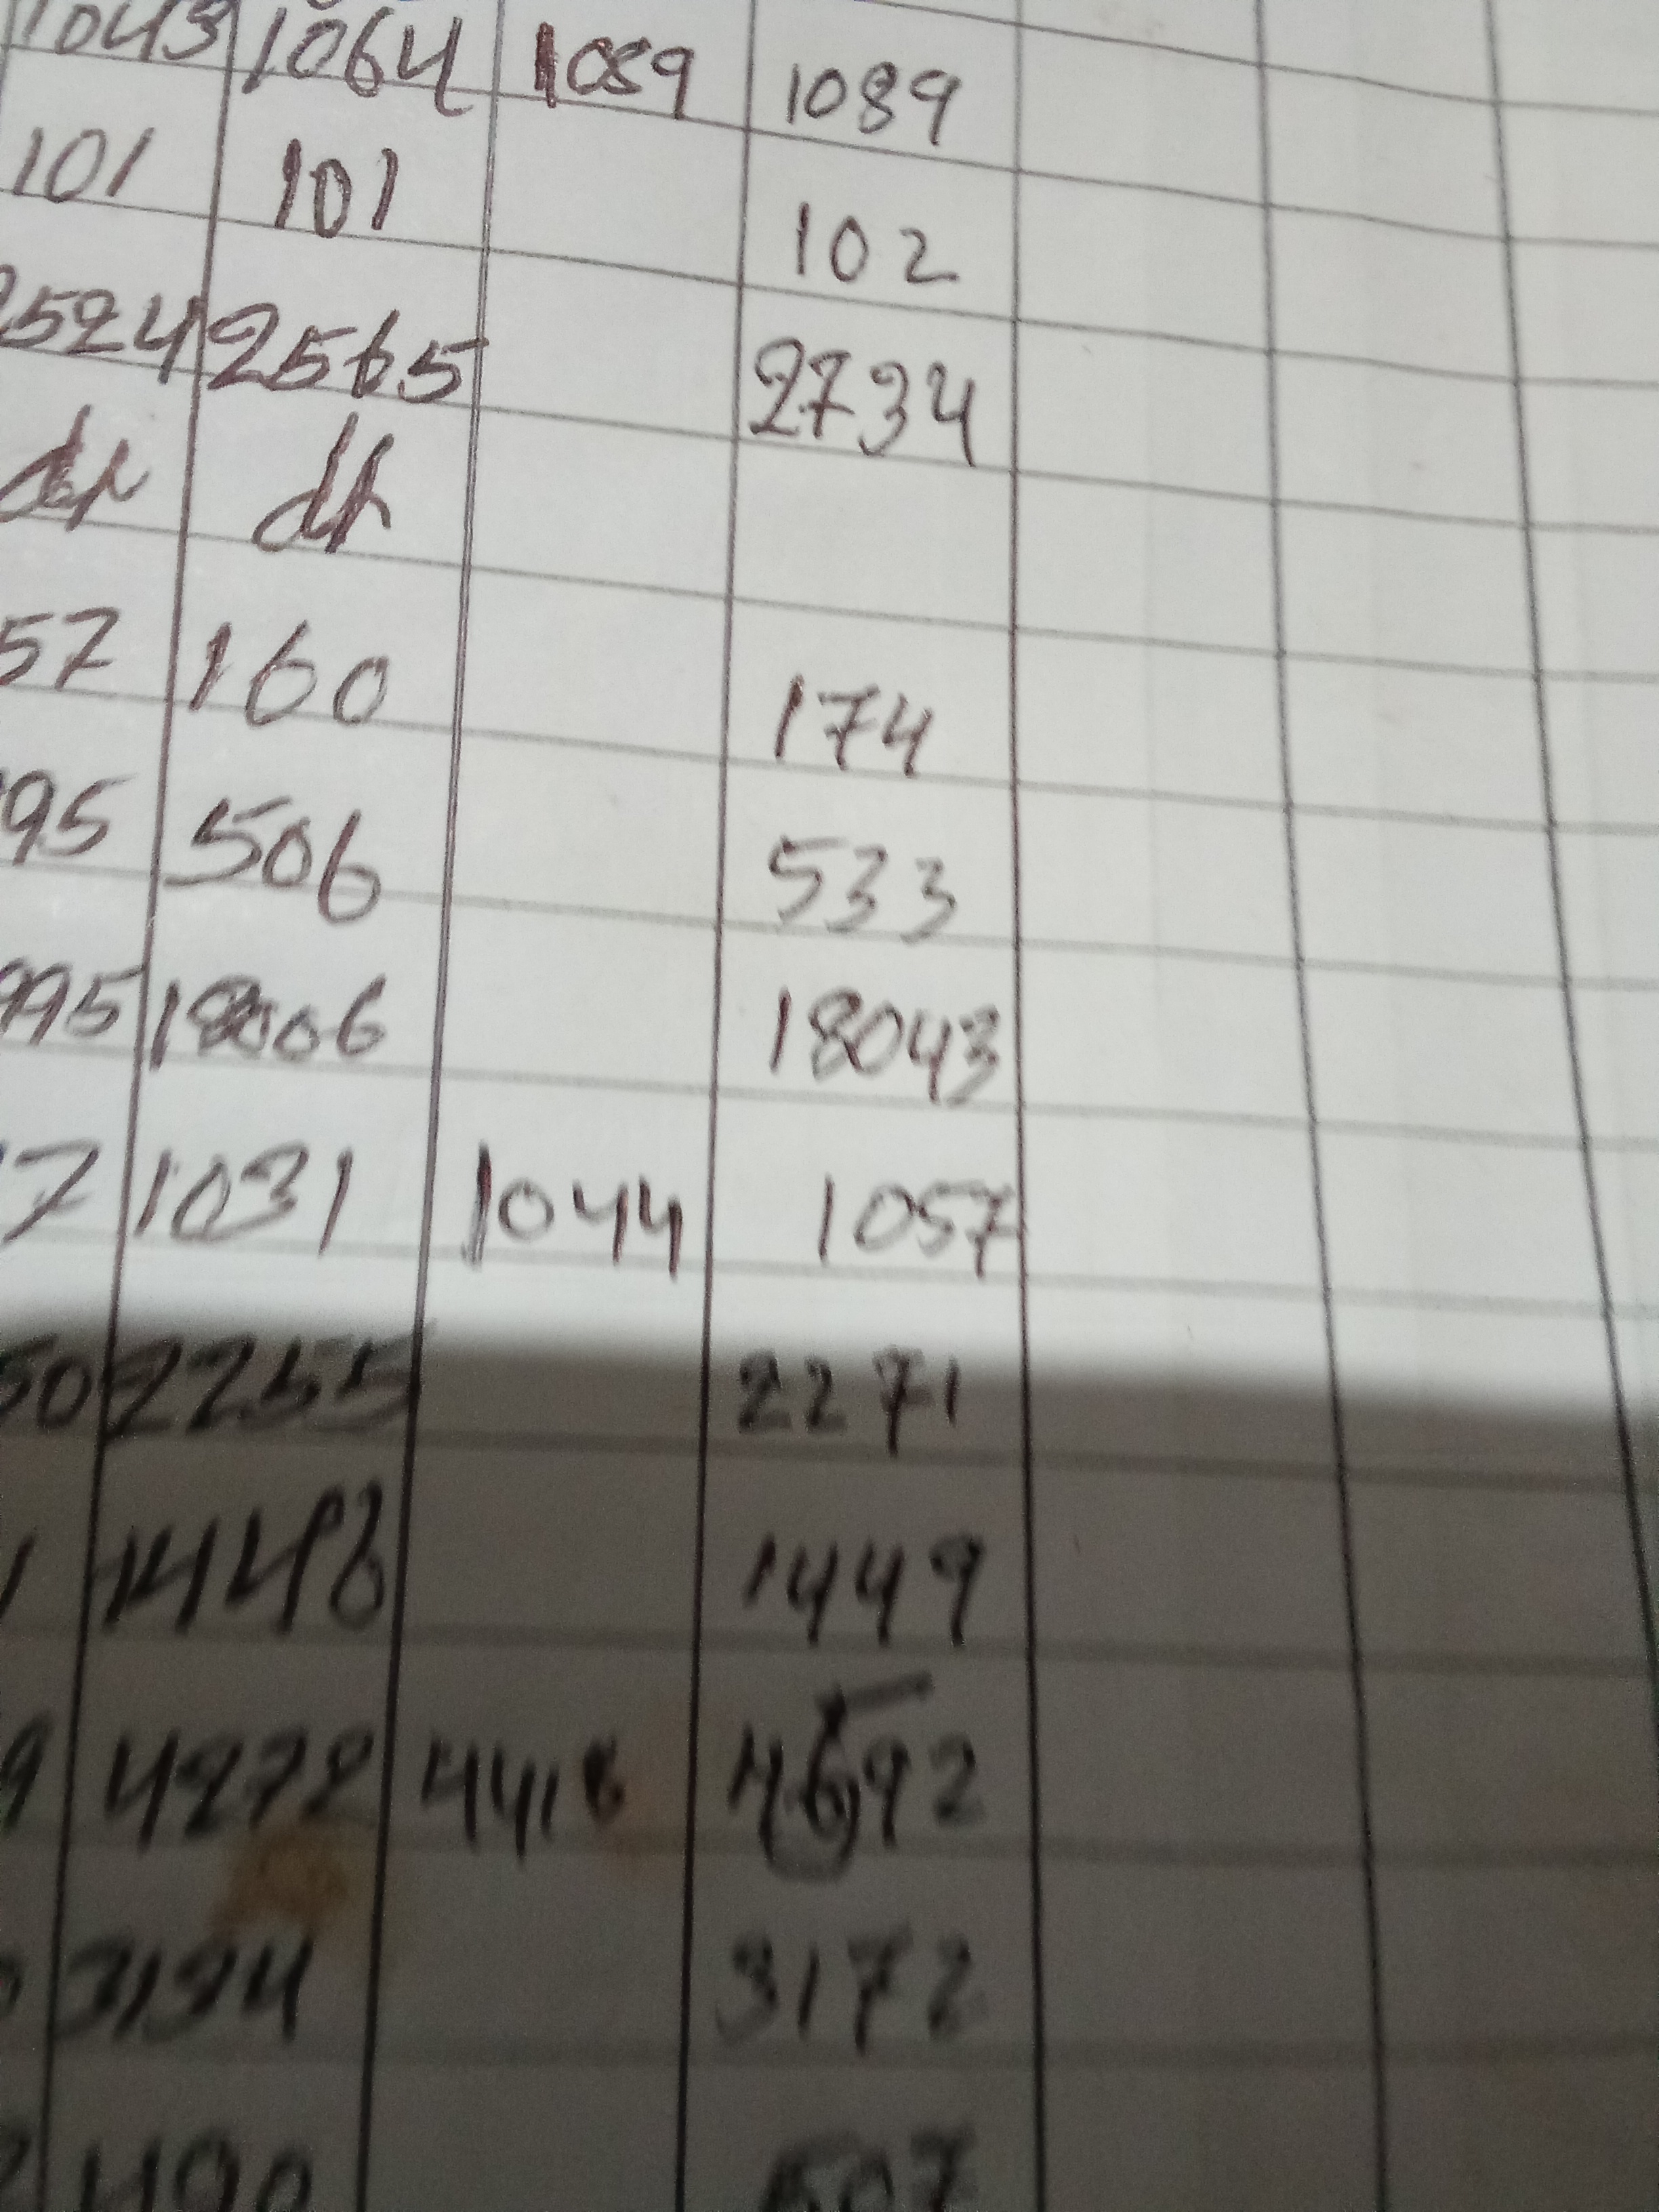 1043 1064 1089 1089
101 101 102
2524 2565 2734
160 174
95 506 533
995 18006 18043
7 1031 1044 1057
50 2255 2271
1448 1449
9 4272 4416
3172
490 507